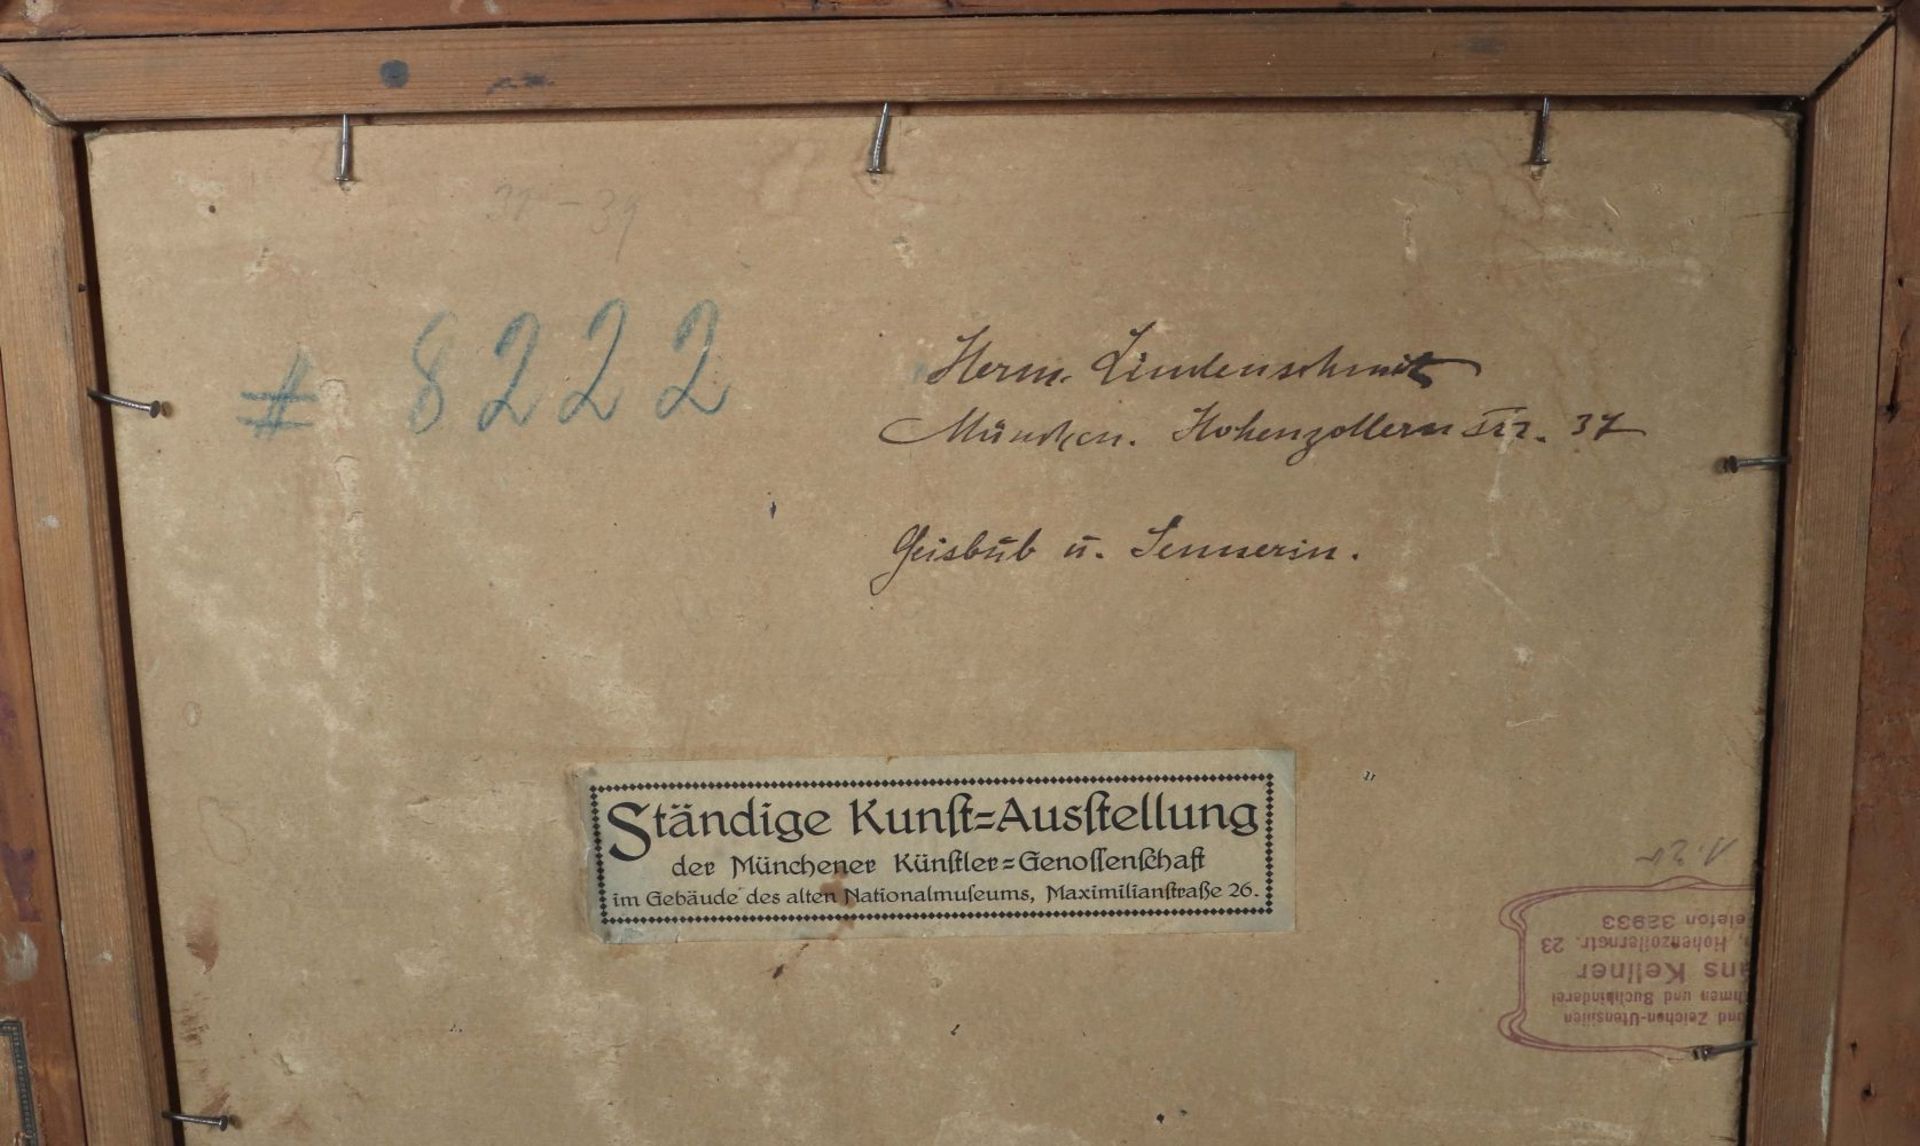 # 8222
Herm. Lindenschmit
München. Hohenzollernstr. 37
Geisbub u. Sennerin.
Ständige Kunſt=Ausſtellung
der Münchener Künſtler=Genoſſenſchaft
im Gebäude des alten Nationalmuſeums, Maximilianſtraße 26.
und Zeichen-Utensilien
hmen und Buchbinderei
ans Kellner
Hohenzollernstr. 23
elefon 32933